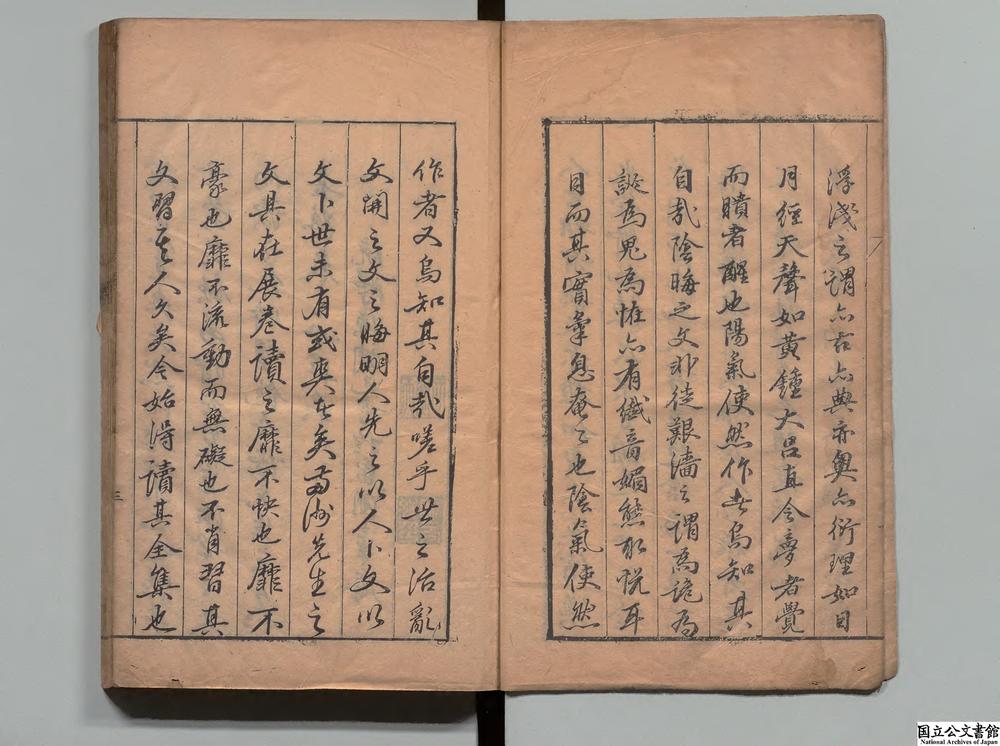 浮淺之謂亦古亦典亦奧亦衍理如日
月經天聲如黃鐘大呂直令夢者覺
而瞶者醒也陽氣使然作者烏知其
自哉陰晦之文非徒艱澀之謂為詭為
誕為鬼為怪亦有纖音媚態取悅耳
目而其實氣息奄々也陰氣使然
作者又烏知其自哉嗟乎世之治亂
文開之文之晦明人先之以人卜文以
文卜世未有或爽者矣 先生之
文具在展卷讀之靡不快也靡不
豪也靡不流動而無礙也不肖習其
文習其人久矣今始得讀其全集也
三
国立公文書館
National Archives of Japan